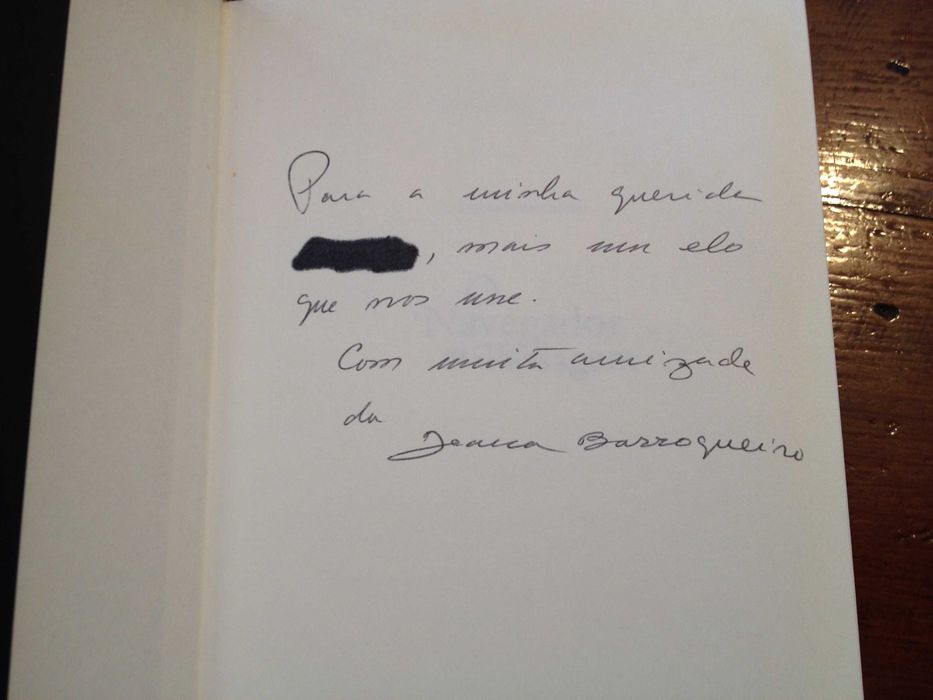 Para a minha querida
, mais um elo
que nos une.
Com muita amizade
da
Deana Barroqueiro